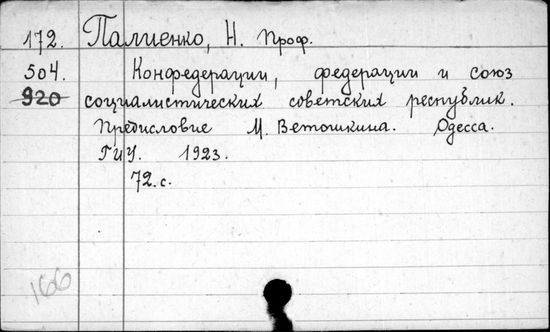 172. Палиенко, Н. Проф.
504. Конфедерации, федерации и союз
920 социалистических советских республик.
Предисловие М. Ветошкина. Одесса.
ГИУ. 1923.
72.с.
166